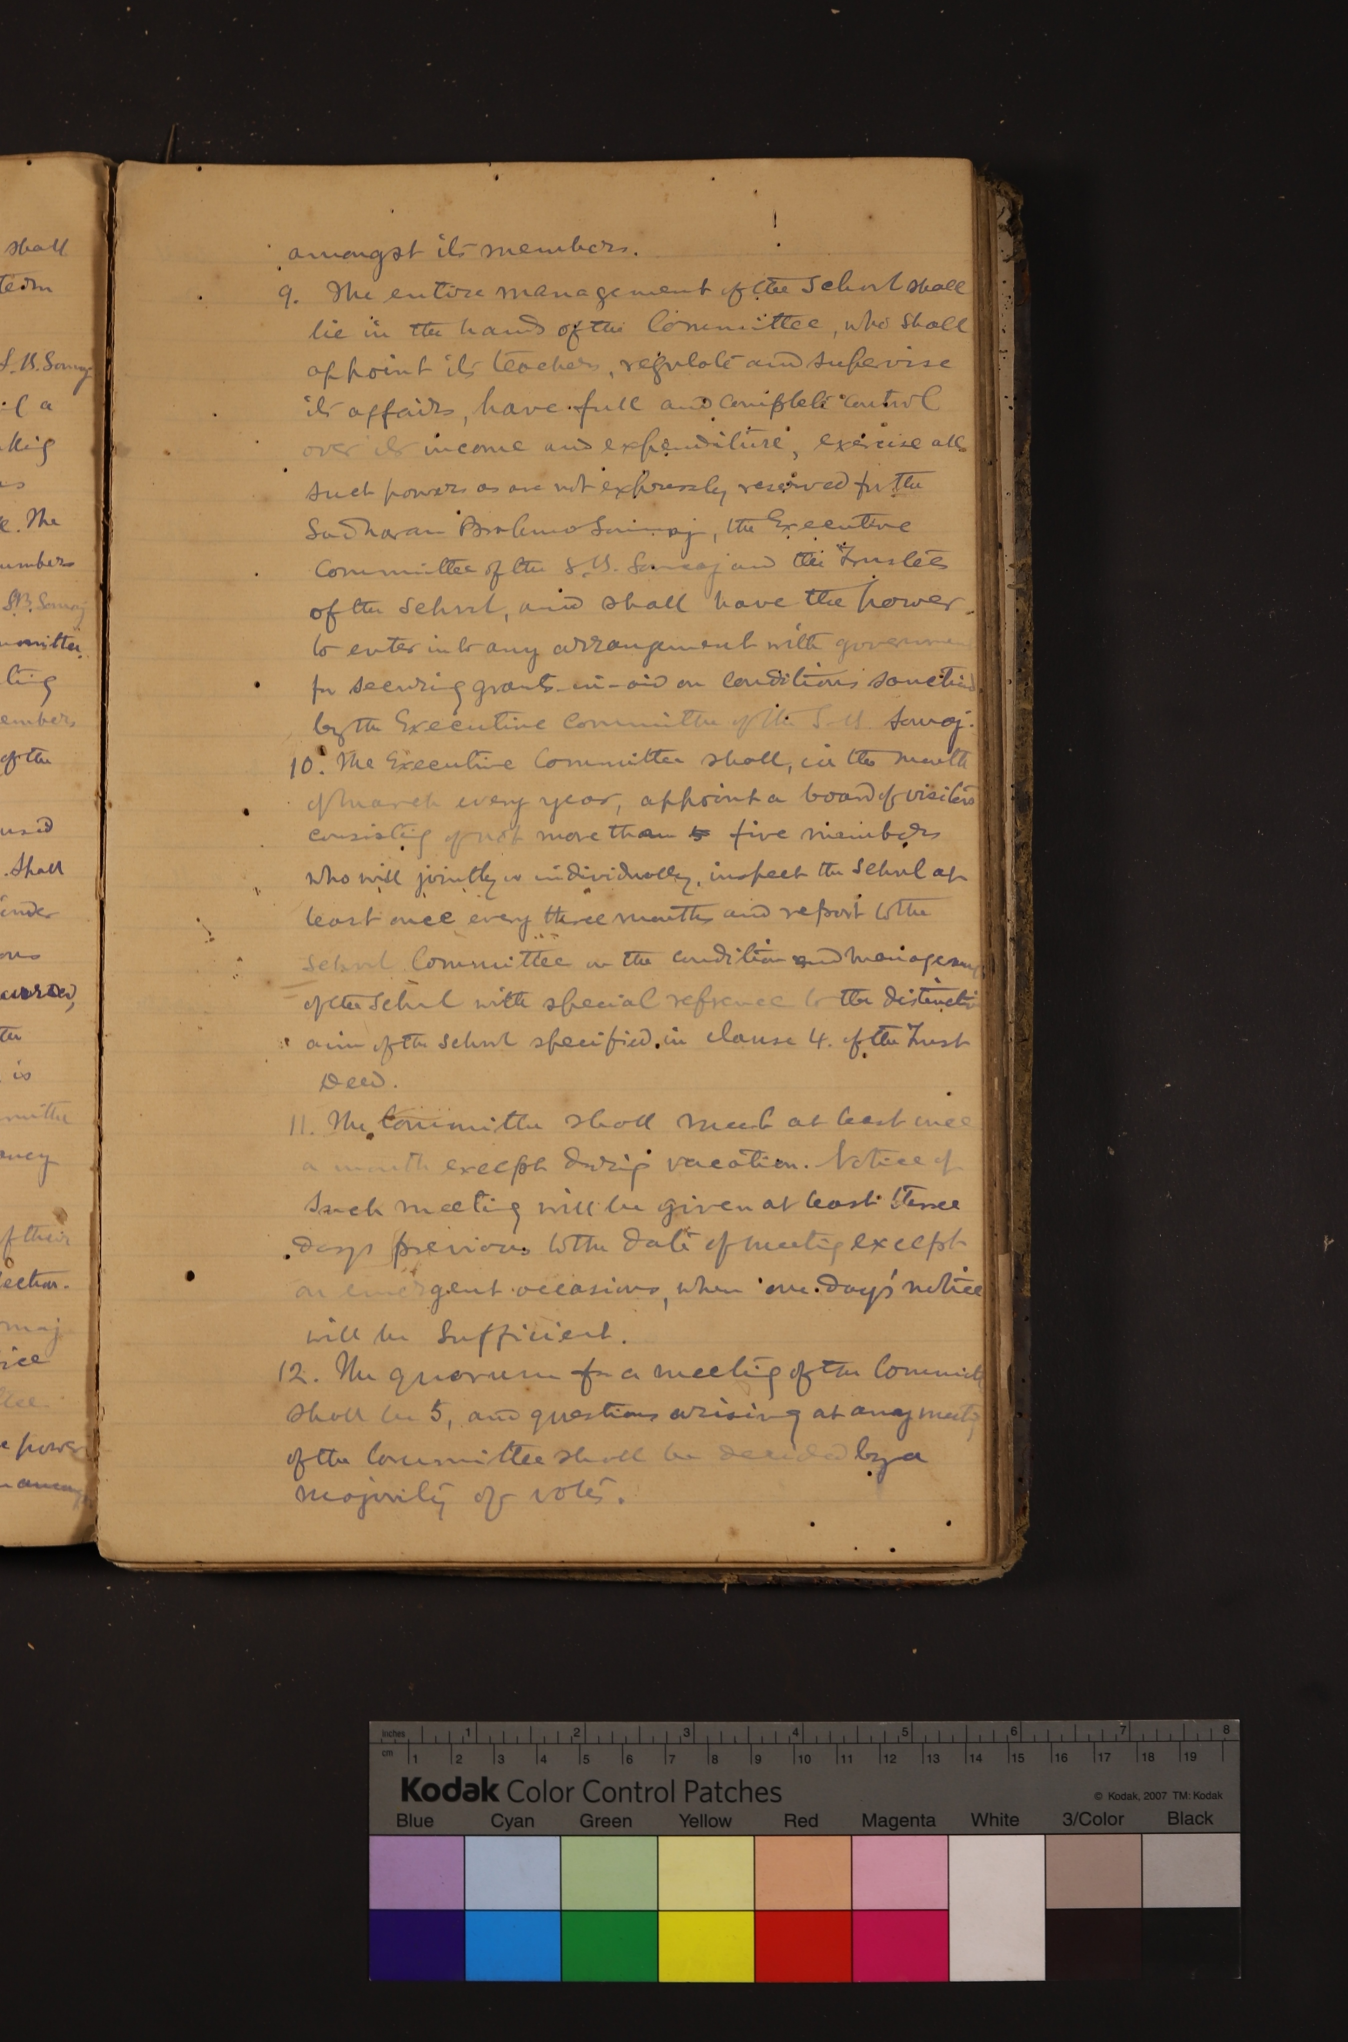 shall
term
S.B. Samaj
of a
king
e. The
members
S.B. Samaj
committee
ting
members
of the
used
. Shall
under
ons
ter
is
mmittee
ancy
of their
lection.
maj
vice
e power
amongst its members.
9. The entire management of the School shall
lie in the hands of the Committee, who shall
appoint its teachers, regulate and supervise
its affairs, have full and complete control
over its income and expenditure, exercise all
such powers as are not expressly reserved for the
Sadharan Brahmo Samaj, the Executive
Committee of the S.B. Samaj and the Trustees
of the School, and shall have the power
to enter into any arrangement with governmen
for securing grants-in-aid on conditions sanctioned
by the Executive Committee of the S.B. Samaj.
10. The Executive Committee shall, in the month
of March every year, appoint a board of visitors
consisting of not more than 5 five members
who will jointly or individually, inspect the School at
least once every three months and report to the
School Committee on the condition and management
of the School with special refrence to the distinctive
aim of the School specified in clause 4. of the Trust
Deed.
11. The Committee shall meet at least once
a month except during vacation. Notice of
such meeting will be given at least three
days previous to the date of meeting except
on emergent occasions, when one day's notice
will be sufficient.
12. The quorum for a meeting of the Committee
shall be 5, and questions arising at any meeting
of the Committee shall be decided by a
majority of votes.
inches 1 2 3 4 5 6 7 8
cm 1 2 3 4 5 6 7 8 9 10 11 12 13 14 15 16 17 18 19
Kodak Color Control Patches
© Kodak, 2007 TM: Kodak
Blue Cyan Green Yellow Red Magenta White 3/Color Black